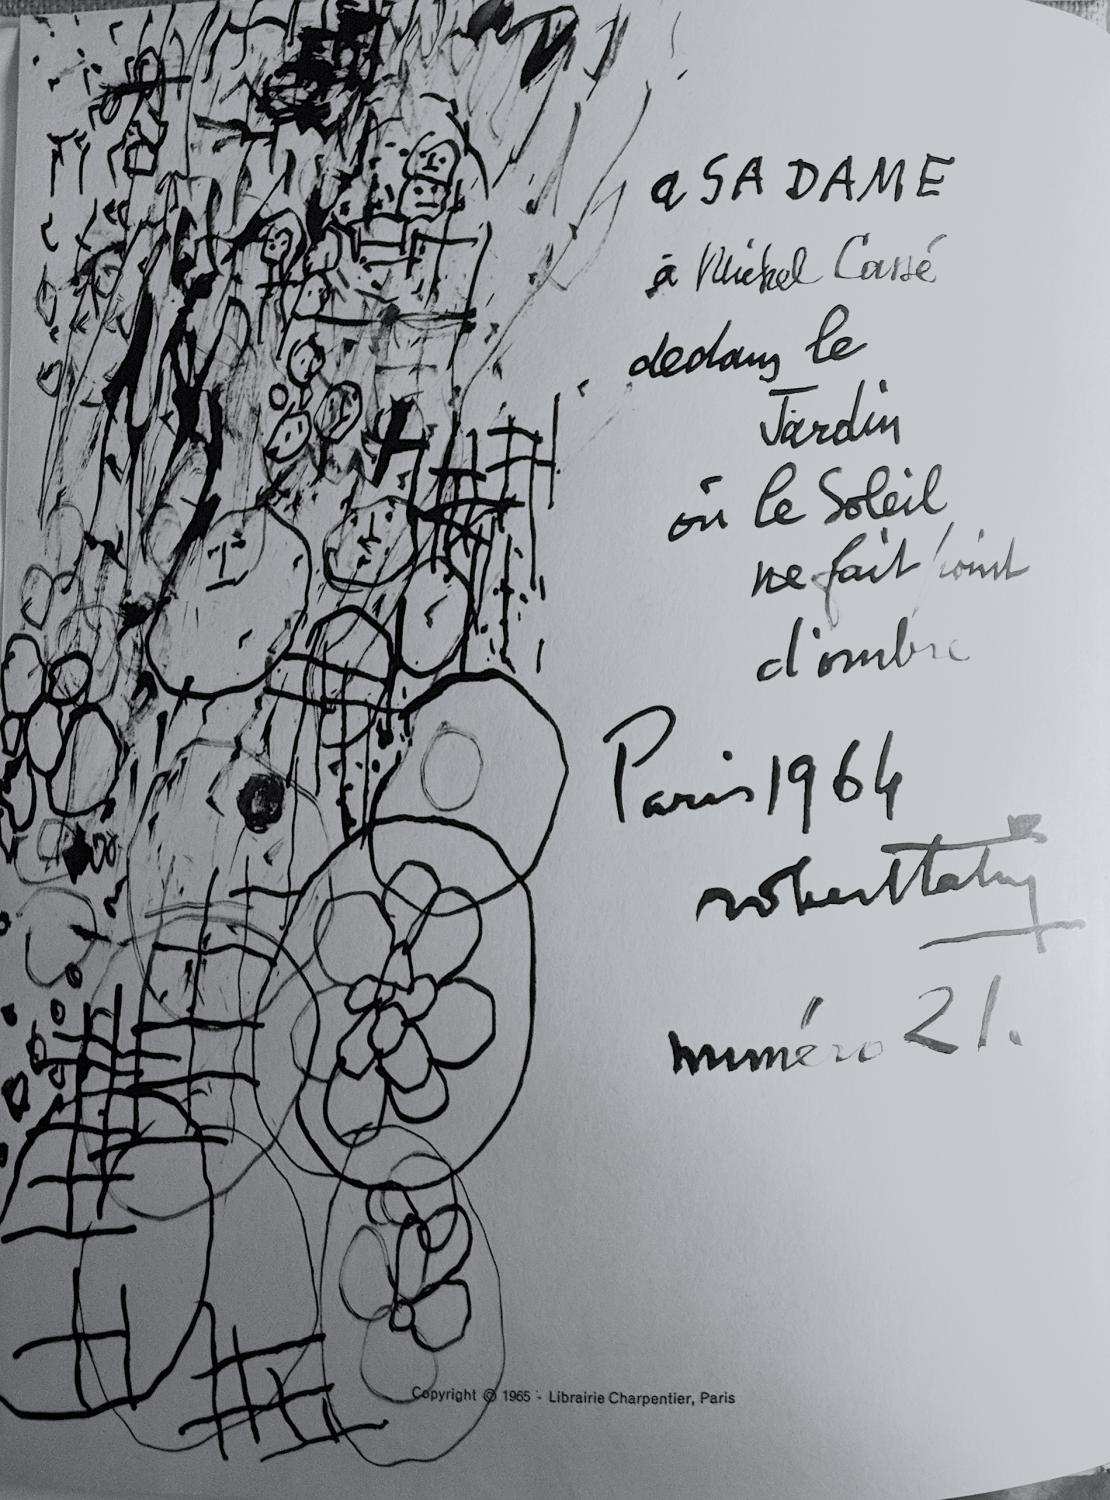 a SA DAME
à Michel Cassé
dedans le
Jardin
où le Soleil
ne fait point
d'ombre
Paris 1964
robert tatin
numéro 21.
Copyright © 1965 - Librairie Charpentier, Paris